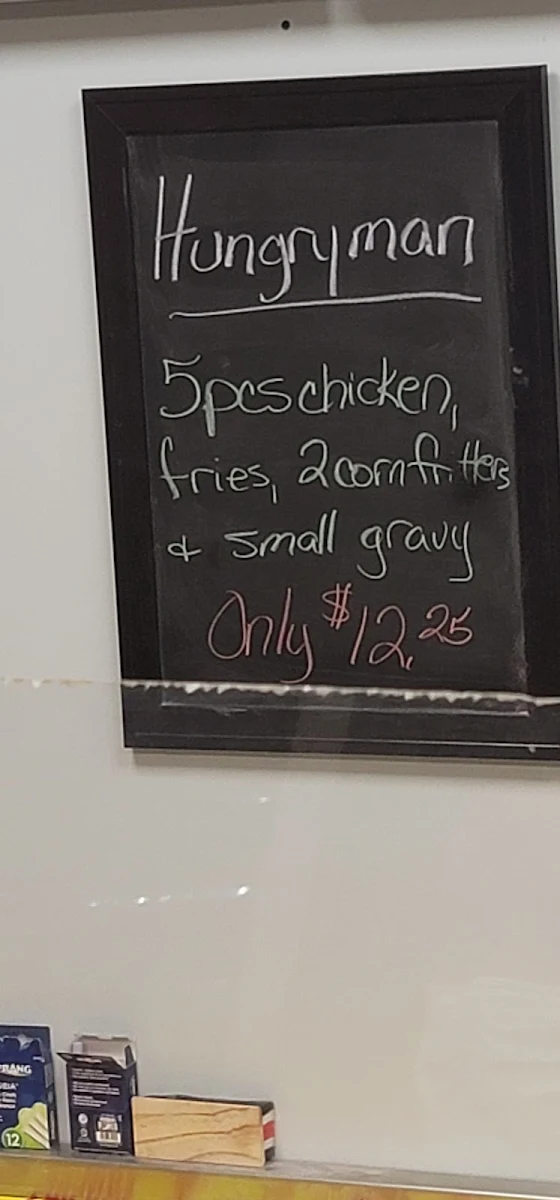 Hungryman
5pcs chicken,
fries, 2 corn fritters
& small gravy
Only $12.25
12